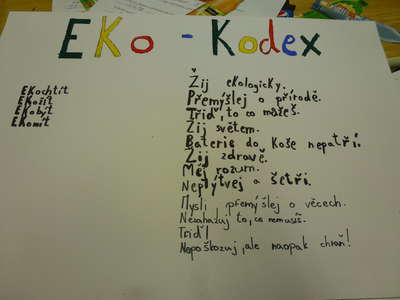 EKo - Kodex
EKochtít
EKožít
EKobýt
EKomít
Žij ekologicky.
Přemýšlej o přírodě.
Třiď, to co můžeš.
Žij světem.
Baterie do koše nepatří.
Žij zdravě.
Měj rozum.
Neplýtvej a šetři.
Mysli přemýšlej o věcech.
Nezahazuj to, co nemusíš.
Třiď!
Nepoškozuj, ale naopak chraň!